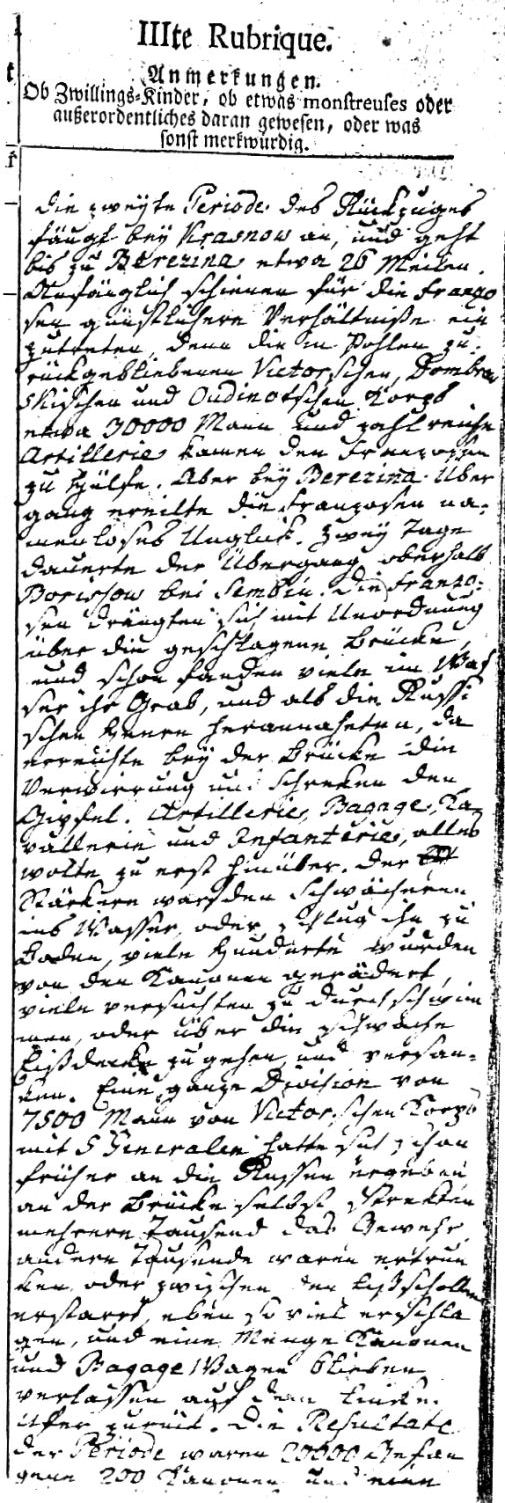 IIIte Rubrique.
Anmerkungen.
Ob Zwillings-Kinder, ob etwas monstreuses oder
außerordentliches daran gewesen, oder was
sonst merkwürdig.
die zweyte Periode des Rückzuges
fängt bey Krasnow an, und geht
bis zu Berezina etwa 26 Meilen.
Anfänglich schienen für die Franzo
sen günstlichere Verhältniße ein
zutreten, denn die in Pohlen zu-
rückgebliebenen Victorschen, Dombrow
skischen und Oudinotschen Korps
etwa 30000 Mann und zahlreiche
Artillerie kamen den Franzosen
zu Hülfe. Aber bey Berezina Über
gang ereilte die Franzosen na-
menloses Unglük. Zwey Tage
dauerte der Übergang oberhalb
Borissow bei Sembin. Die Franzo-
sen drängten sich mit Unordnung
über die geschlagene Brücke,
und schon fanden viele im Was
ser ihr Grab, und als die Russi
schen Heere herannaheten, da
erreichte bey der Brücke die
Verwirrung und Schreken den
Gipfel. Artillerie, Bagage, Ka-
vallerie und Infanterie, alles
wolte zu erst hinüber. Der
Stärkere warf den Schwächeren
ins Wasser, oder schlug ihn zu
Boden, viele Hunderte wurden
von den Kanonen gerädert,
viele versuchten zu durchschwim
men, oder über die schwache
Eißdecke zu gehen und versan-
ken. Eine ganze Division von
7500 Mann von Victorschen Korps
mit 5 Generalen hatte sich schon
früher an die Russen ergeben
an der Brücke selbst strekten
mehrere Tausend das Gewehr
andere Tausende waren ertrun
ken, oder zwischen den Eißschollen
erstarrt, eben so viel erschla
gen, und eine Menge Kanonen
und Bagage Wagen blieben
verlassen auf dem linken
Ufer zurük. Die Resultate
der Periode waren 20000 Gefan
gene 200 Kanonen und eine